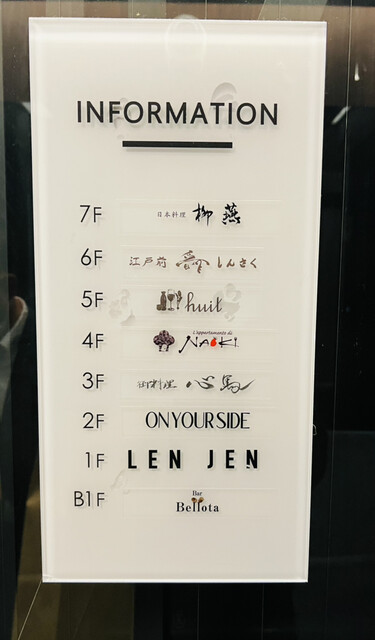 INFORMATION
7F 日本料理 柳燕
6F 江戸前 しんさく
5F huit
4F L'appartamento di NAOKI
3F 御料理 心馬
2F ON YOUR SIDE
1F LEN JEN
B1F Bar Bellota